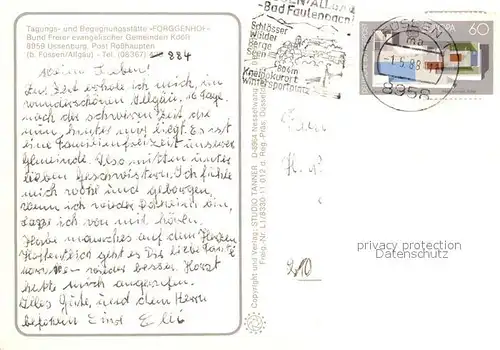 Tagungs- und Begegnungsstätte »FORGGENHOF«
Bund Freier evangelischer Gemeinden KdöR
8959 Ussenburg, Post Roßhaupten
(b. Füssen/Allgäu) - Tel. (08367) 884
Meine Lieben!
Zur Zeit erhole ich mich, im
wunderschönen Allgäu, 16 Tage.
nach der schweren Zeit die
nun, hinter mir liegt. Es ist
eine Familienfreizeit unserer
Gemeinde. Also mitten unter
lieben Geschwistern. Ich fühle
mich wohl und geborgen,
wenn ich wieder daheim bin,
lasse ich von mir hören.
Habe manches auf dem Herzen
Hoffentlich geht es Dir liebe
wieder besser. Horst
hatte mich angerufen.
Alles Gute, und dem Herrn
befohlen Eure Elli
Copyright und Verlag: STUDIO TANNER D-8964 Nesselwang
Freig.-Nr. L1/8330 11 012 d. Reg. Präs. Düsseldorf
-Bad Faulenbach!
Schlösser
Wälder
Berge
Seen
Kneippkurort
Wintersportplatz
FÜSSEN
-1.6.88
8958
60
210
privacy protection
Datenschutz